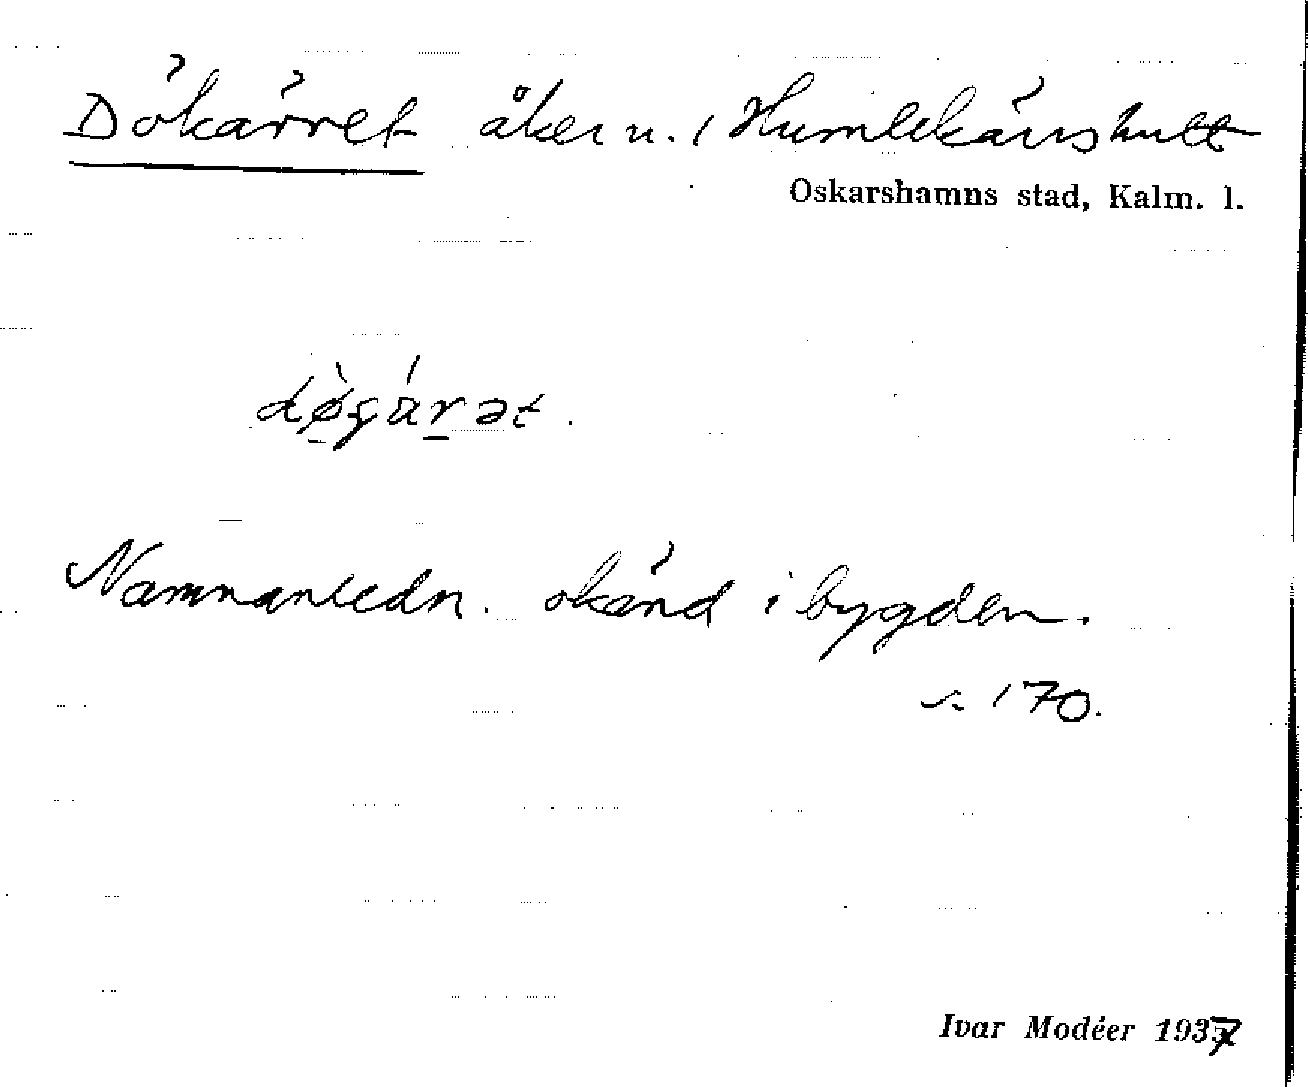 Dökärret åker u. / Humlekärrshult
Oskarshamns stad, Kalm. l.
Namnanledn. okänd i bygden.
s. 170.
Ivar Modéer 1937